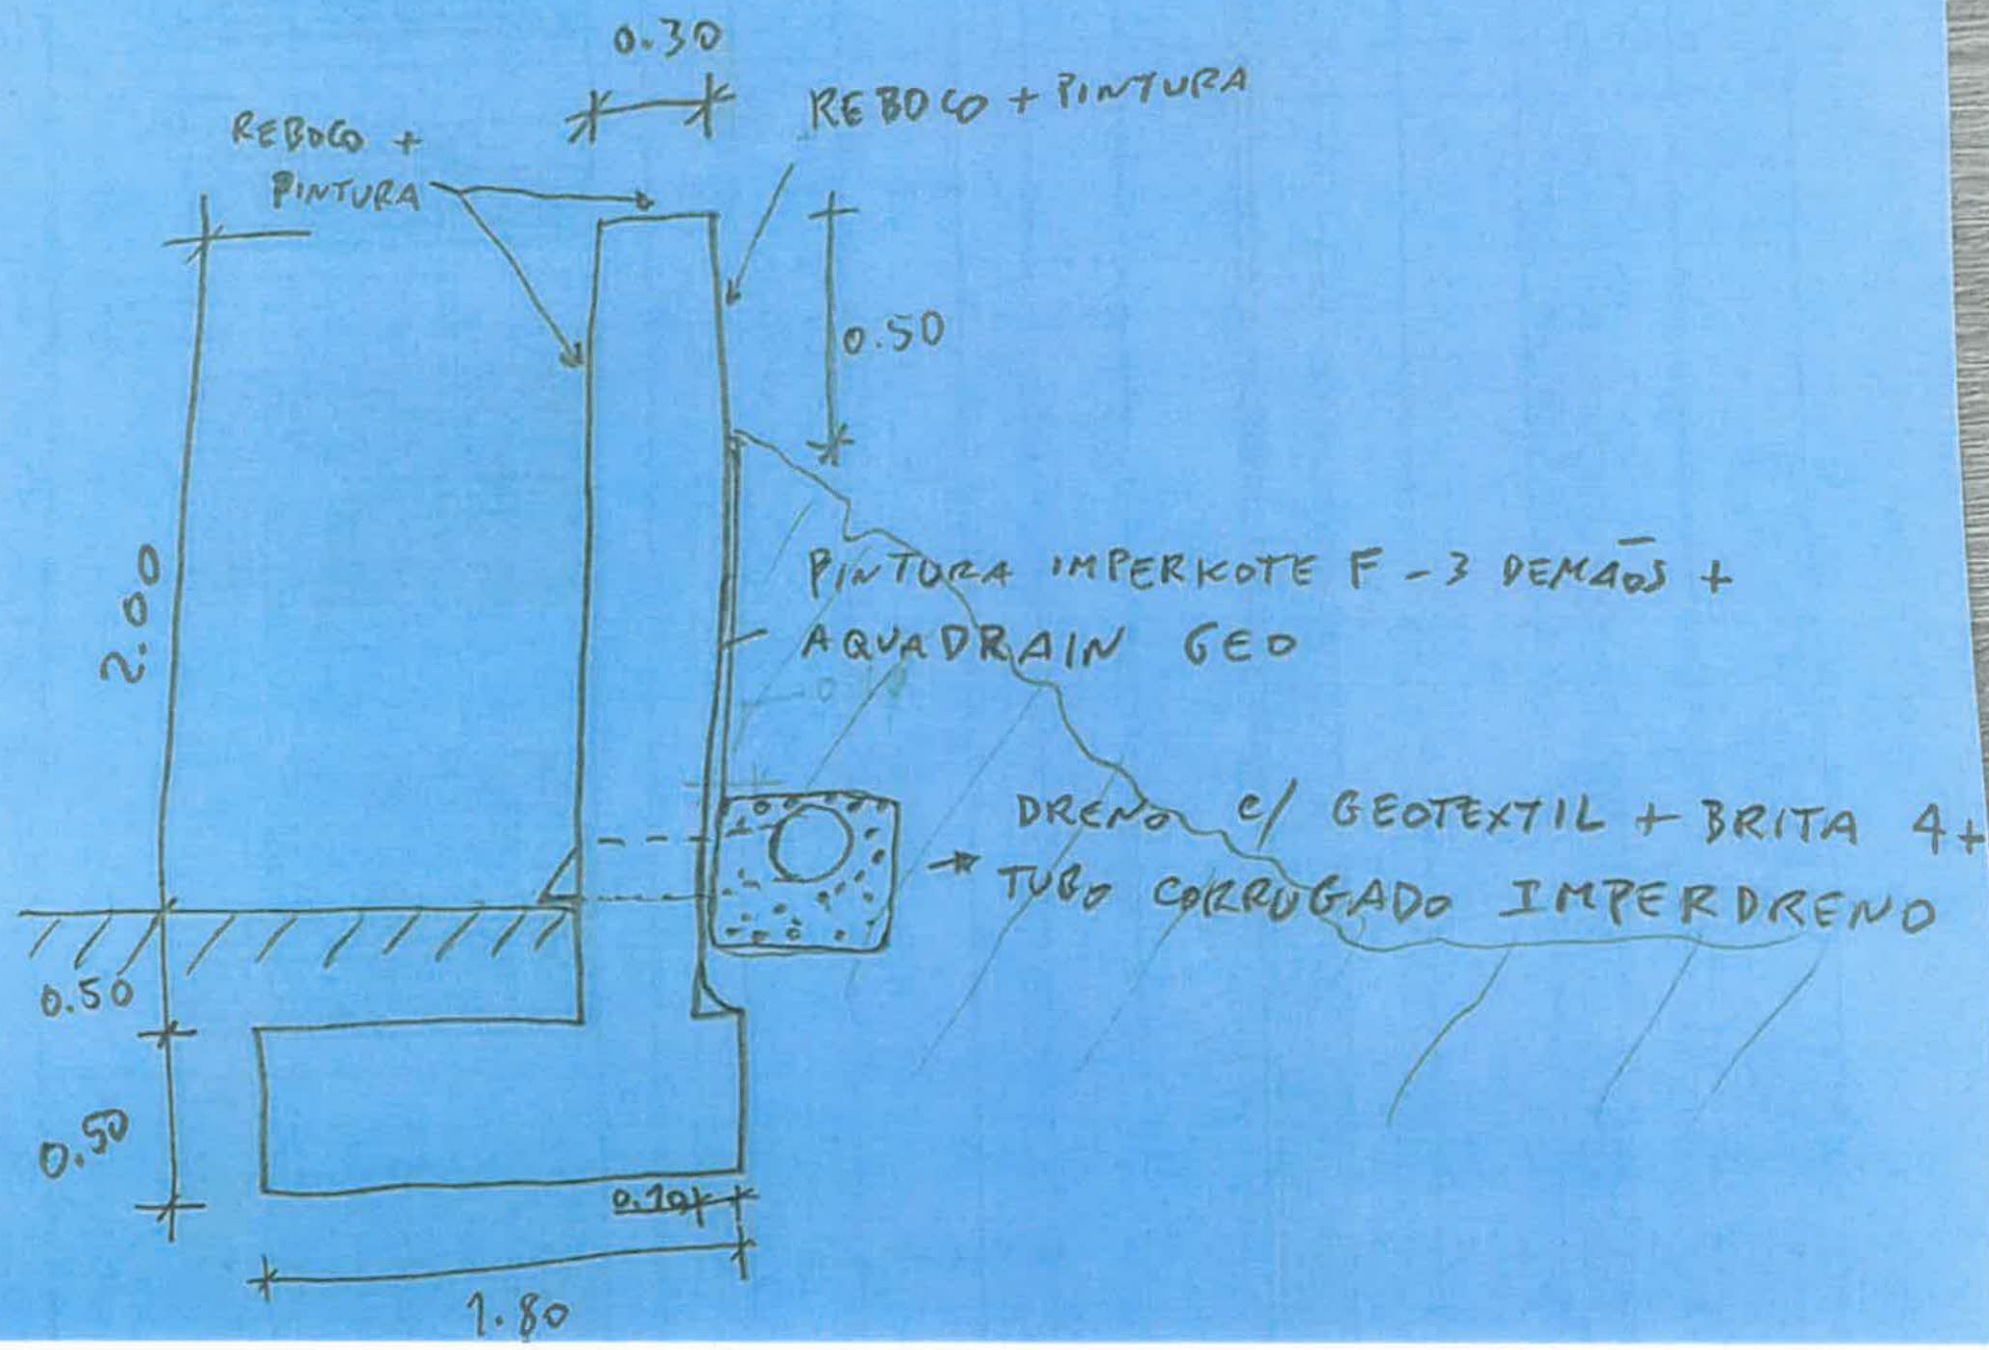 0.30
REBOCO + PINTURA
REBOCO +
PINTURA
0.50
2.00
PINTURA IMPERKOTE F - 3 DEMÃOS +
AQUADRAIN GEO
DRENO C/ GEOTEXTIL + BRITA 4 +
TUBO CORRUGADO IMPERDRENO
0.50
0.50
0.10
1.80